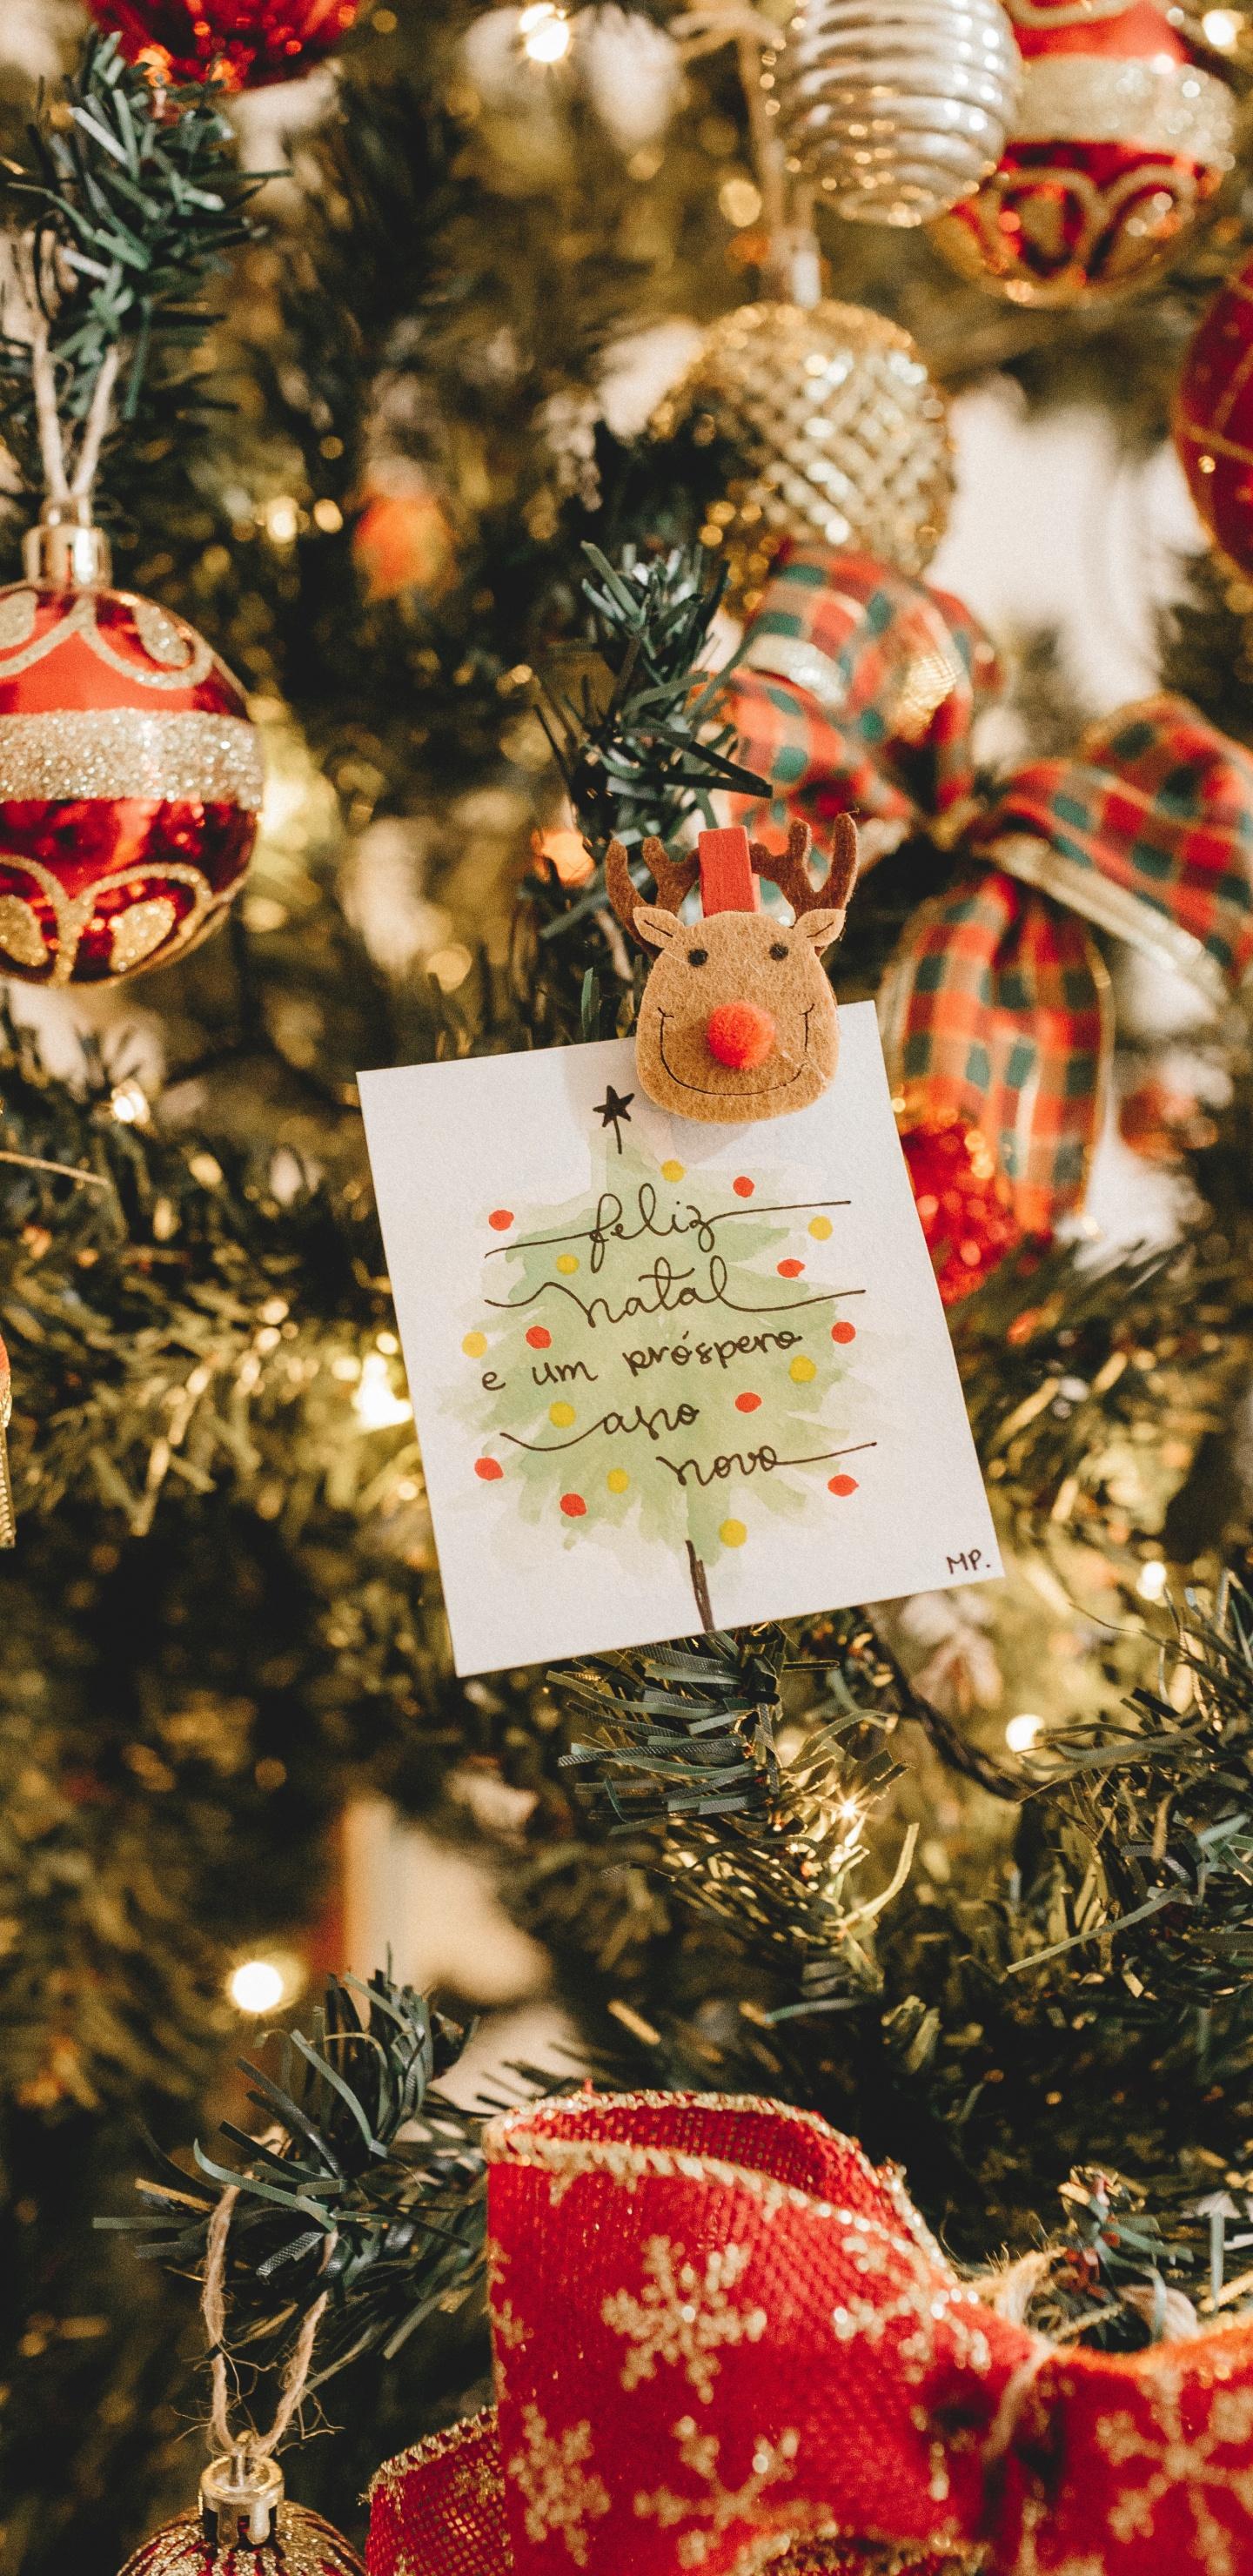 feliz
natal
e um próspero
ano
novo
MP.